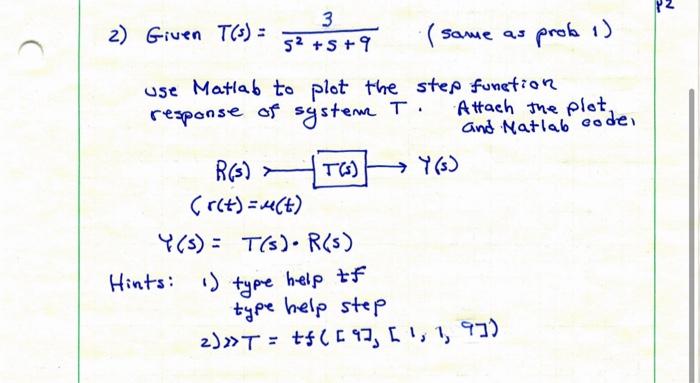 P2
2) Given T(s) = 3 / (s² + s + 9) (same as prob 1)
use Matlab to plot the step function
response of system T. Attach the plot,
and Matlab code,
R(s) T(s) Y(s)
(r(t) = u(t)
Y(s) = T(s) · R(s)
Hints: 1) type help tf
type help step
2) >> T = tf([9], [1, 1, 9])